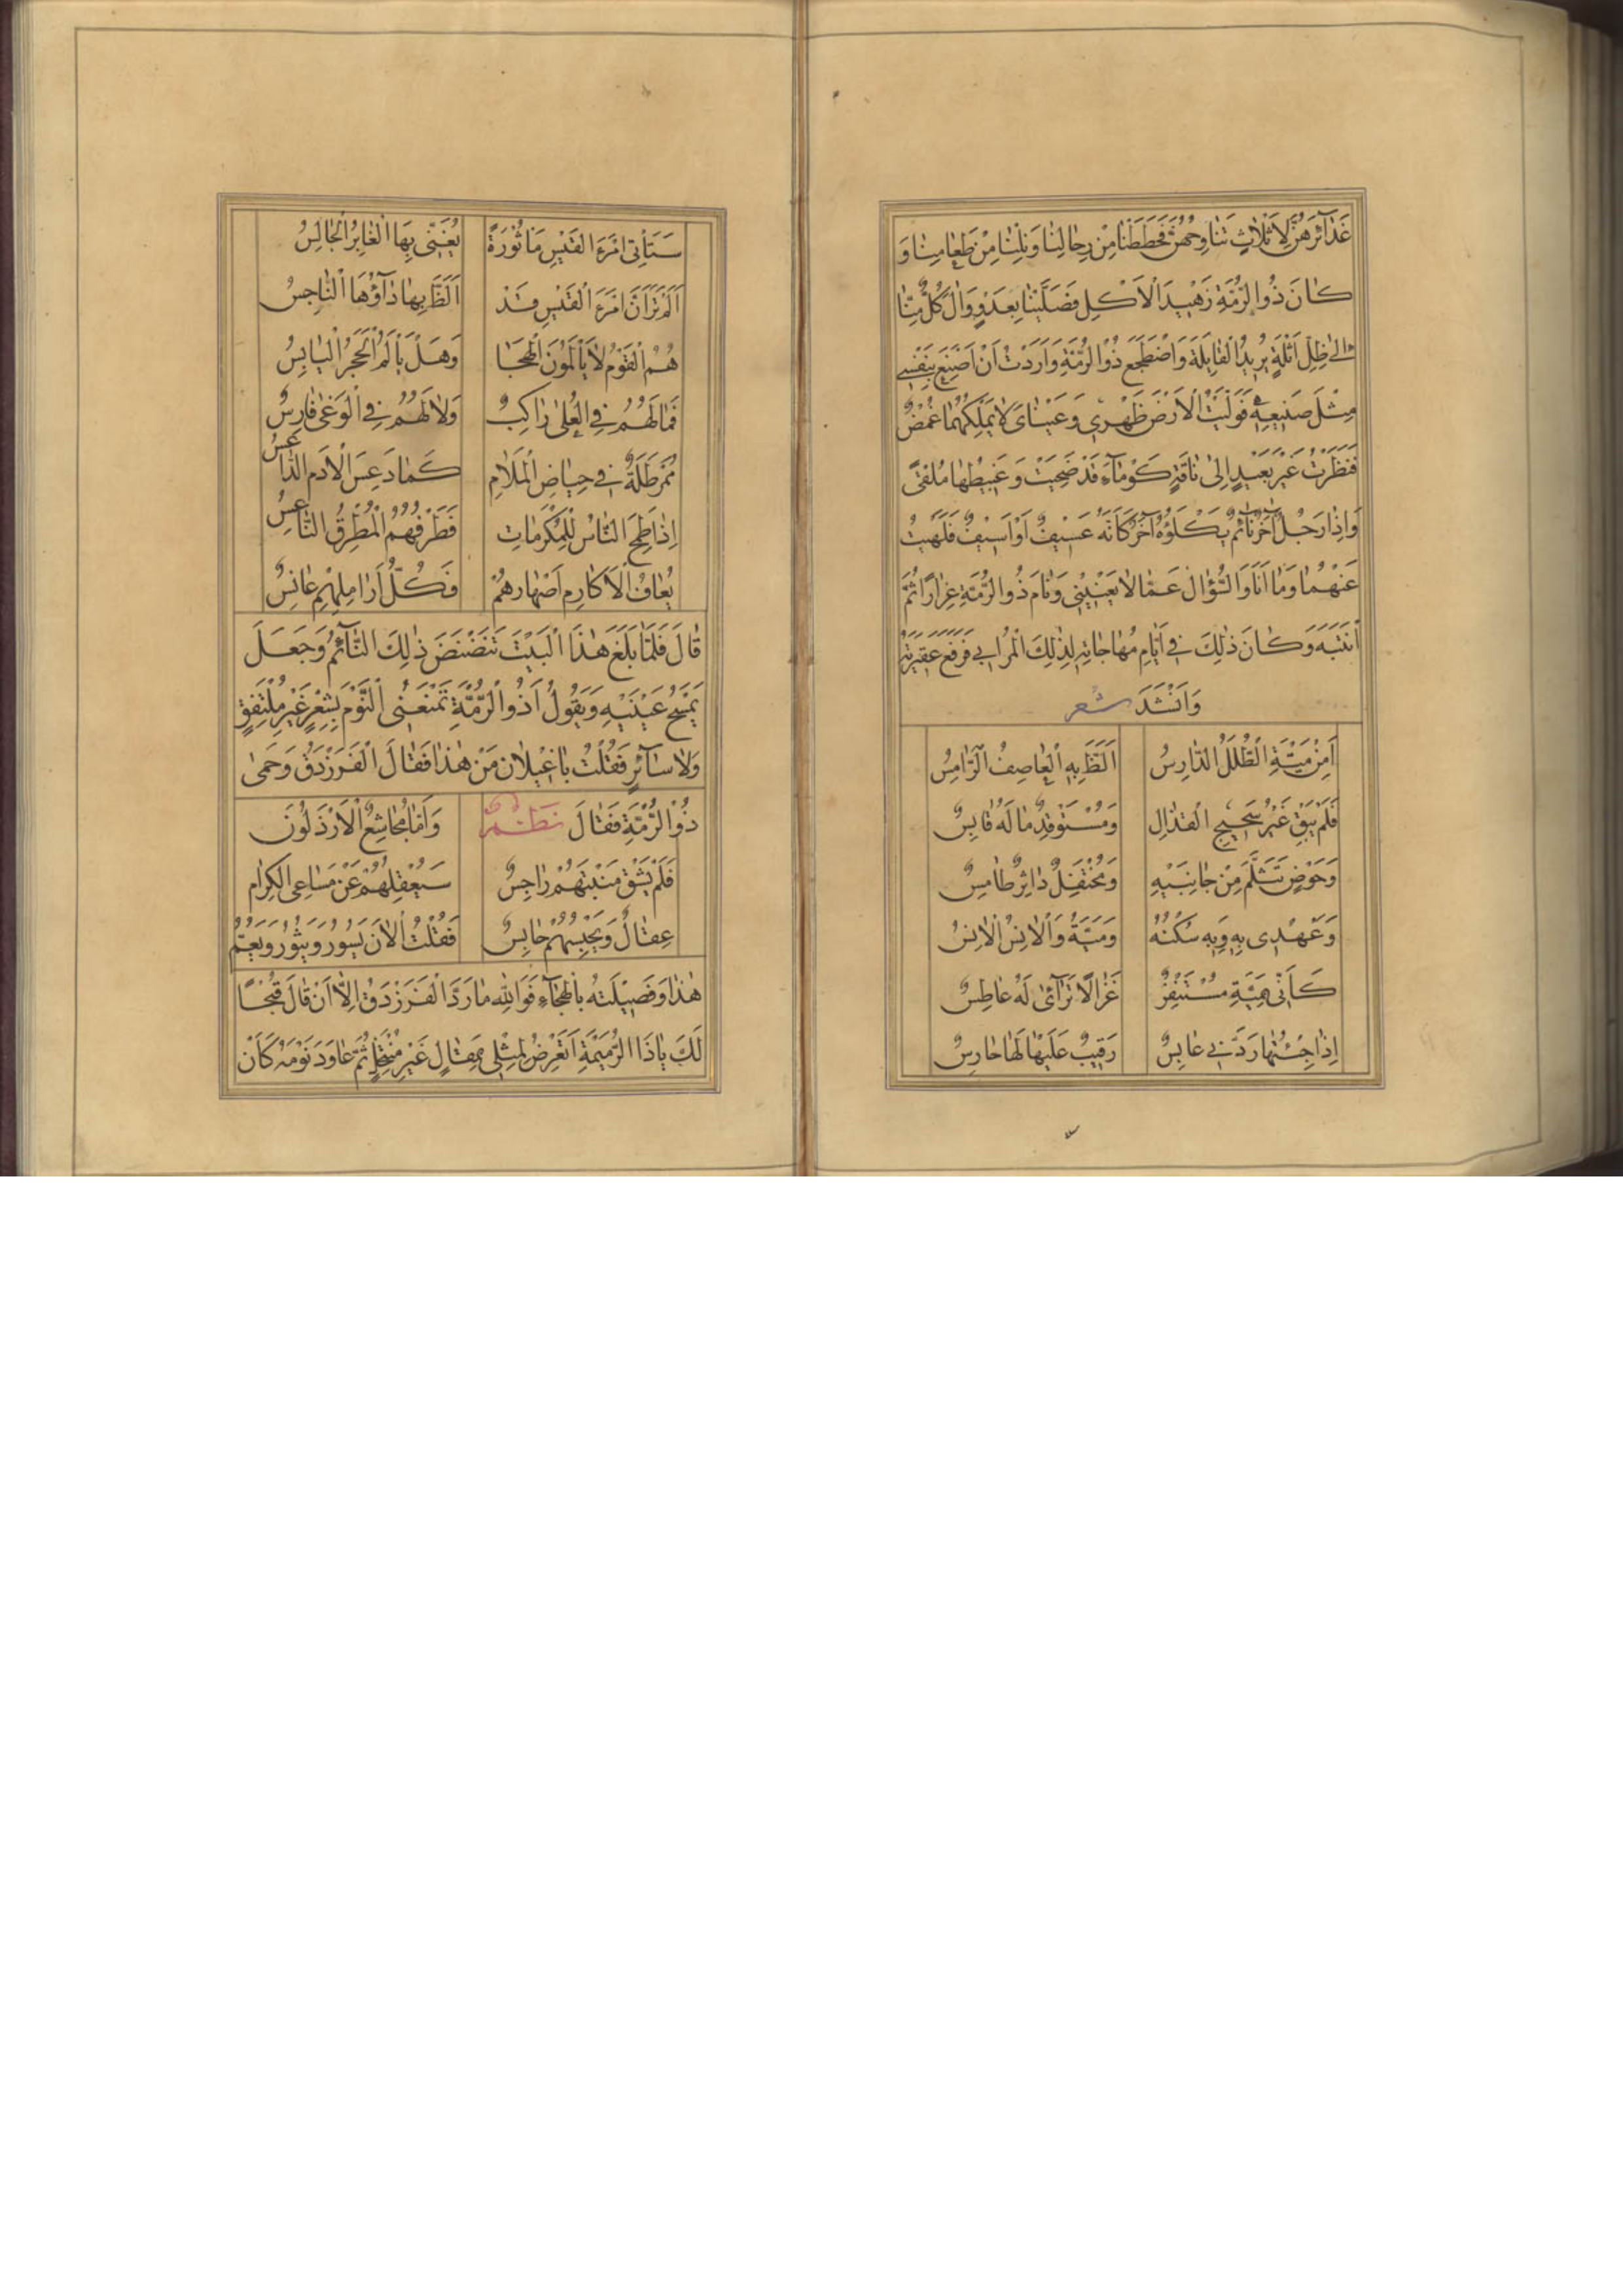 غَدَآئِرَهُنَّ لِاَثَلاثٍ تَنَاوِحُهُنَّ فَحَطَطْنَا مِنْ رِحَالِنَا وَنِلْنَا مِنْ طَعَامِنَا وَ
كَانَ ذُو الرُّمَّةِ زَهِيدَ الْاَكْلِ فَصَلَّيْنَا بَعْدُ وَوَالَ كُلٌّ مِنَّا
اِلىٰ ظِلِّ اَثْلَةٍ يُرِيدُ الْقَايِلَةَ وَاضْطَجَعَ ذُو الرُّمَّةِ وَاَرَدْتُ اَنْ اَصْنَعَ بِنَفْسِي
مِثْلَ صَنِيعِهِ فَوَلَّيْتُ الْاَرْضَ ظَهْرِي وَعَيْنَاىَ لَا يَمْلِكُهُمَا غُمْضٌ
فَنَظَرْتُ غَيْرَ بَعِيدٍ اِلىٰ نَاقَةٍ كَوْمَآءَ قَدْ ضَحِيَتْ وَغَبِيطُهَا مُلْقىً
وَاِذَا رَجُلٌ آخَرُ نَآئِمٌ يَكْلَؤُهُ آخَرُ كَاَنَّهُ عَسِيفٌ اَوْ اَسِيفٌ فَلَهَيْتُ
عَنْهُمَا وَمَا اَنَا وَالسُّؤَالَ عَمَّا لَا يَعْنِينِى وَنَامَ ذُو الرُّمَّةِ غِرَارًا ثُمَّ
انْتَبَهَ وَكَانَ ذٰلِكَ فِى اَيَّامِ مُهَاجَاتِهِ لِذٰلِكَ الْمُرَّايِى فَرَفَعَ عَقِيرَتَهُ
وَاَنْشَدَ شعر
اَمِنْ مَيَّةَ الطَّلَلُ الدَّارِسُ اَلَظَّ بِهِ الْعَاصِفُ الرَّامِسُ
فَلَمْ يَبْقَ غَيْرُ شَحِيجِ الْقَذَالِ وَمُسْتَوْقِدٌ مَا لَهُ قَابِسُ
وَحَوْضٍ تَثَلَّمَ مِنْ جَانِبَيْهِ وَمُحْتَفِلٌ دَاثِرٌ طَامِسُ
وَعَهْدِى بِهِ وَبِهِ سَكْنُهُ وَمَيَّةُ وَالْاِنْسُ الْاِنْسُ
كَاَنِّى بِمَيَّةَ مُسْتَنْفِرٌ غَزَالًا تَرَآئىٰ لَهُ عَاطِسُ
اِذَا جِئْتُهَا رَدَّنِى عَابِسٌ رَقِيبٌ عَلَيْهَا لَهَا حَارِسُ
سَتَأْتِى امْرَءَ الْقَيْسِ مَأْثُورَةٌ يُغَنِّى بِهَا الْغَابِرُ الْجَالِسُ
اَلَمْ تَرَ اَنَّ امْرَءَ الْقَيْسِ قَدْ اَلَظَّ بِهَا دَآؤُهَا النَّاجِسُ
هُمُ الْقَوْمُ لَا يَأْلَمُونَ الْهِجَا وَهَلْ يَأْلَمُ الْحَجَرُ الْيَابِسُ
فَمَا لَهُمُ فِى الْعُلىٰ رَاكِبٌ وَلَا لَهُمُ فِى الْوَغىٰ فَارِسُ
مُمَرْطَلَةٌ فِى حِيَاضِ الْمَلَامِ كَمَا دَعِسَ الْاَدَمَ الدَّاعِسُ
اِذَا طَمَحَ النَّاسُ لِلْمَكْرُمَاتِ فَطَرْفُهُمُ الْمُطْرِقُ النَّاعِسُ
يُعَافُ الْاَكَارِمُ اَصْهَارَهُمْ فَكُلُّ اَرَامِلِهِمْ عَانِسُ
قَالَ فَلَمَّا بَلَغَ هٰذَا الْبَيْتَ تَنَضْنَضَ ذٰلِكَ النَّآئِمُ وَجَعَلَ
يَمْسَحُ عَيْنَيْهِ وَيَقُولُ اَذُو الرُّمَّةِ تَمْنَعُنِى النَّوْمَ بِشِعْرٍ غَيْرِ مُلْتَفِقٍ
وَلَا سَآئِرٍ فَقُلْتُ يَا غَيْلَانُ مَنْ هٰذَا فَقَالَ الْفَرَزْدَقُ وَحَمىٰ
ذُو الرُّمَّةِ فَقَالَ نظم وَاَمَّا مُجَاشِعٌ الْاَرْذَلُونَ
فَلَمْ يَسْقِ مَنْبِتَهُمْ رَاجِسُ سَيَعْقِلُهُمْ عَنْ مَسَاعِى الْكِرَامِ
عِقَالٌ وَيَحْبِسُهُمْ حَابِسُ فَقُلْتُ اَلْاٰنَ يَسُورُ وَيَثُورُ وَيَعُمُّ
هٰذَا وَفَصِيلَتَهُ بِالْهِجَآءِ فَوَاللهِ مَا رَدَّ الْفَرَزْدَقُ اِلَّا اَنْ قَالَ قُبْحًا
لَكَ يَا ذَا الرُّمَيْمَةِ اَتَعَرَّضُ لِمِثْلِى بِمَقَالٍ غَيْرِ مُنْتَحَلٍ ثُمَّ عَاوَدَ نَوْمَهُ كَاَنْ